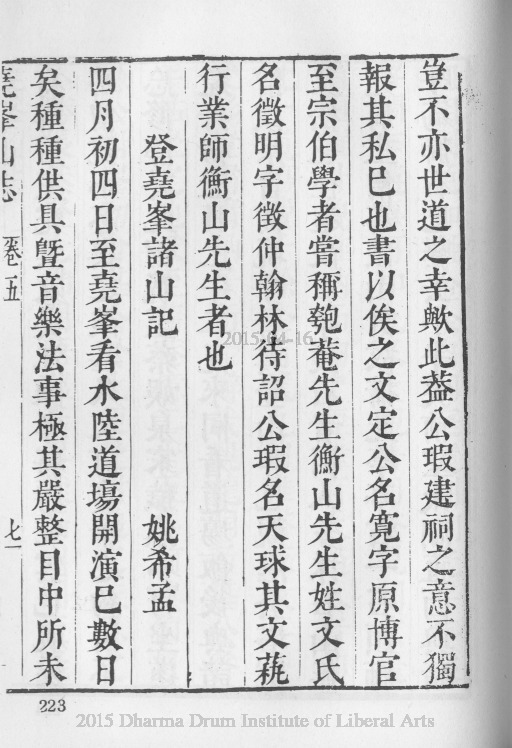 豈不亦世道之幸歟此葢公瑕建祠之意不獨
報其私已也書以俟之文定公名寬字原博官
至宗伯學者嘗稱匏菴先生衡山先生姓文氏
名徵明字徵仲翰林待詔公瑕名天球其文蓺
行業師衡山先生者也
登堯峯諸山記 姚希孟
四月初四日至堯峯看水陸道塲開演已數日
矣種種供具曁音樂法事極其嚴整目中所未
堯峯山志 卷五 七
223
2015-04-16
2015 Dharma Drum Institute of Liberal Arts